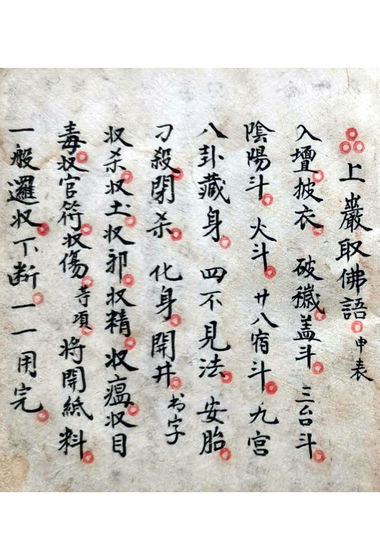 上巖取佛語申表
入壇披衣 破穢盖斗 三台斗
陰陽斗 火斗 廿八宿斗 九宮
八卦藏身 四不見法 安胎
刀殺閉杀 化身開井 书字
収杀収土収邪収精 収瘟収目
毒収官符収傷等項 將開紙料
一般邏収不断一一用完